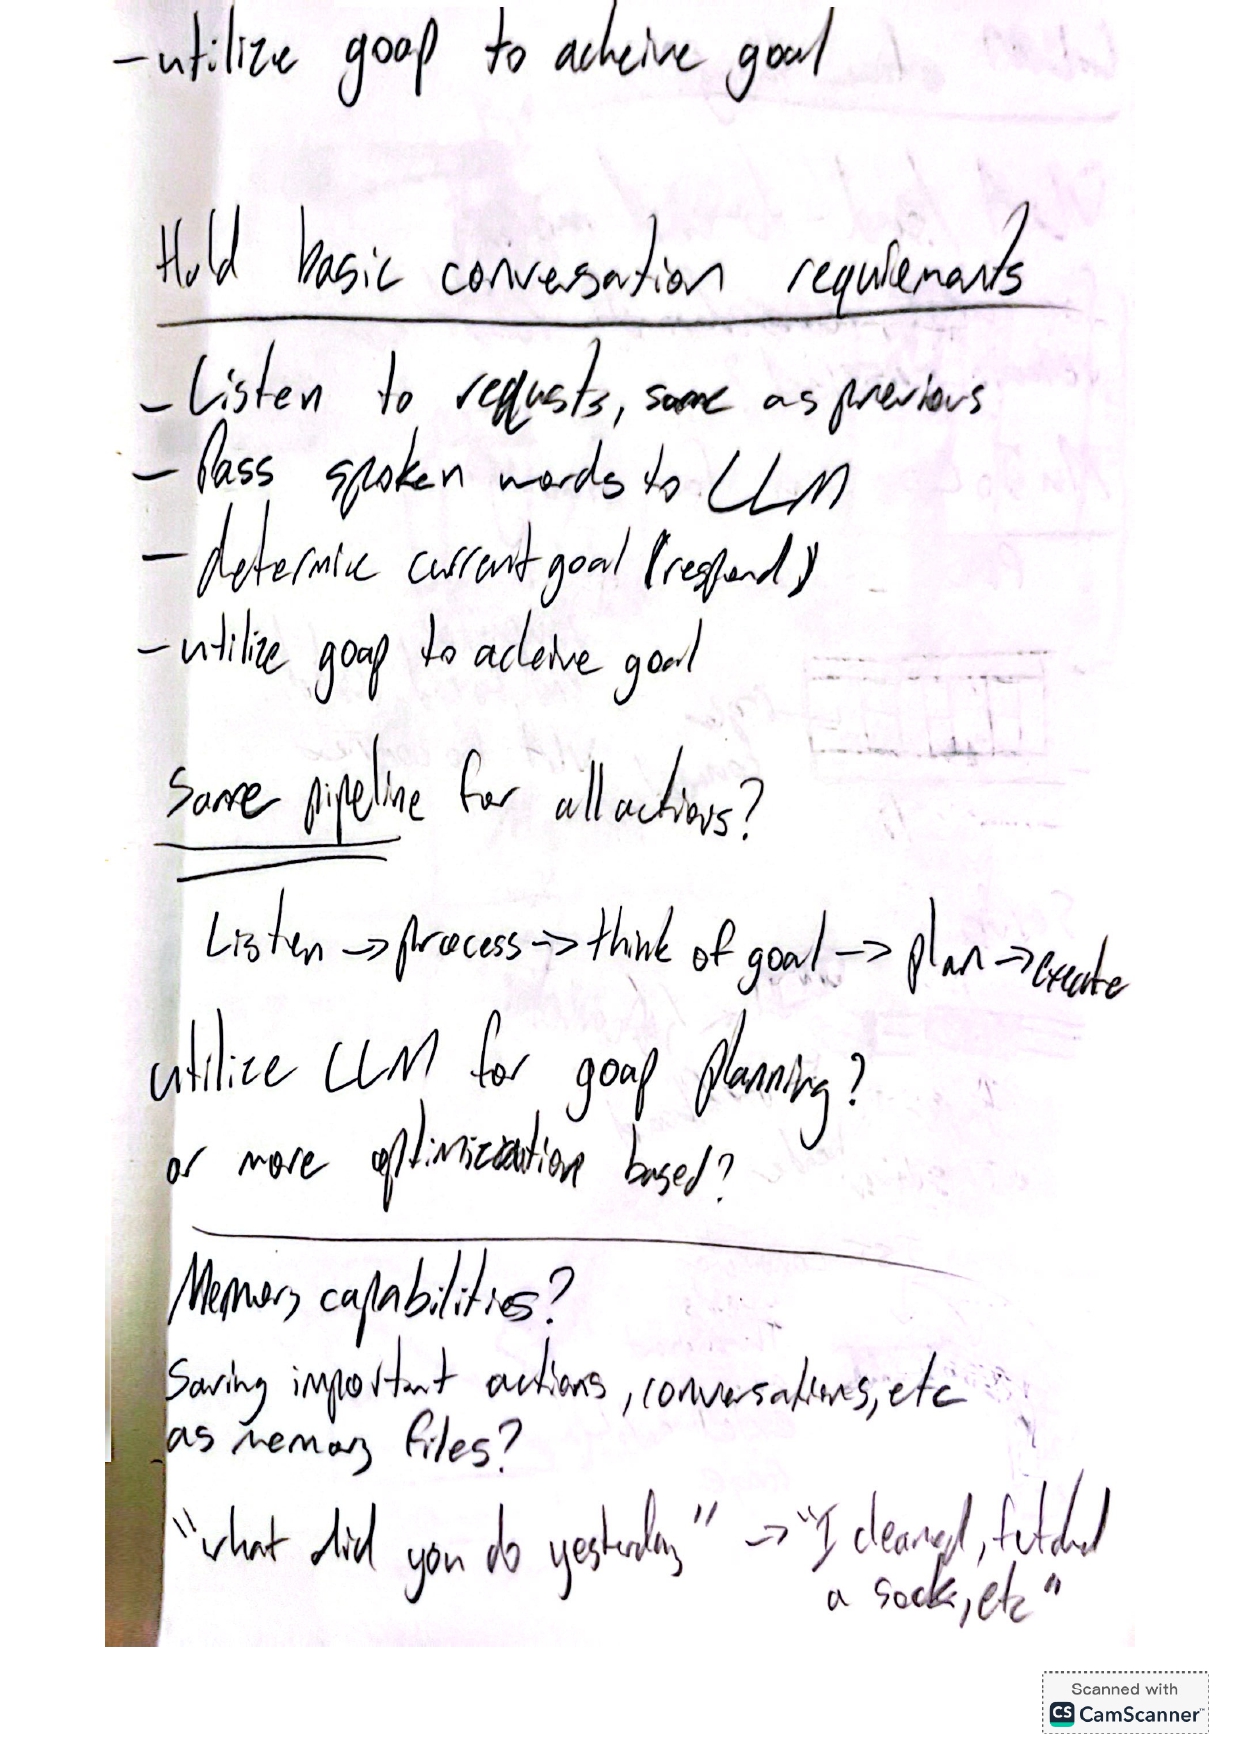 - utilize goap to acheive goal
Hold basic conversation requirements
- Listen to requests, same as previous
- Pass spoken words to LLM
- determine current goal (respond)
- utilize goap to acheive goal
Same pipeline for all actions?
Listen -> process -> think of goal -> plan -> execute
utilize LLM for goap planning?
or more optimization based?
Memory capabilities?
Saving important actions, conversations, etc
as memory files?
"what did you do yesterday" -> "I cleaned, fetched
a sock, etc"
Scanned with
CS CamScanner